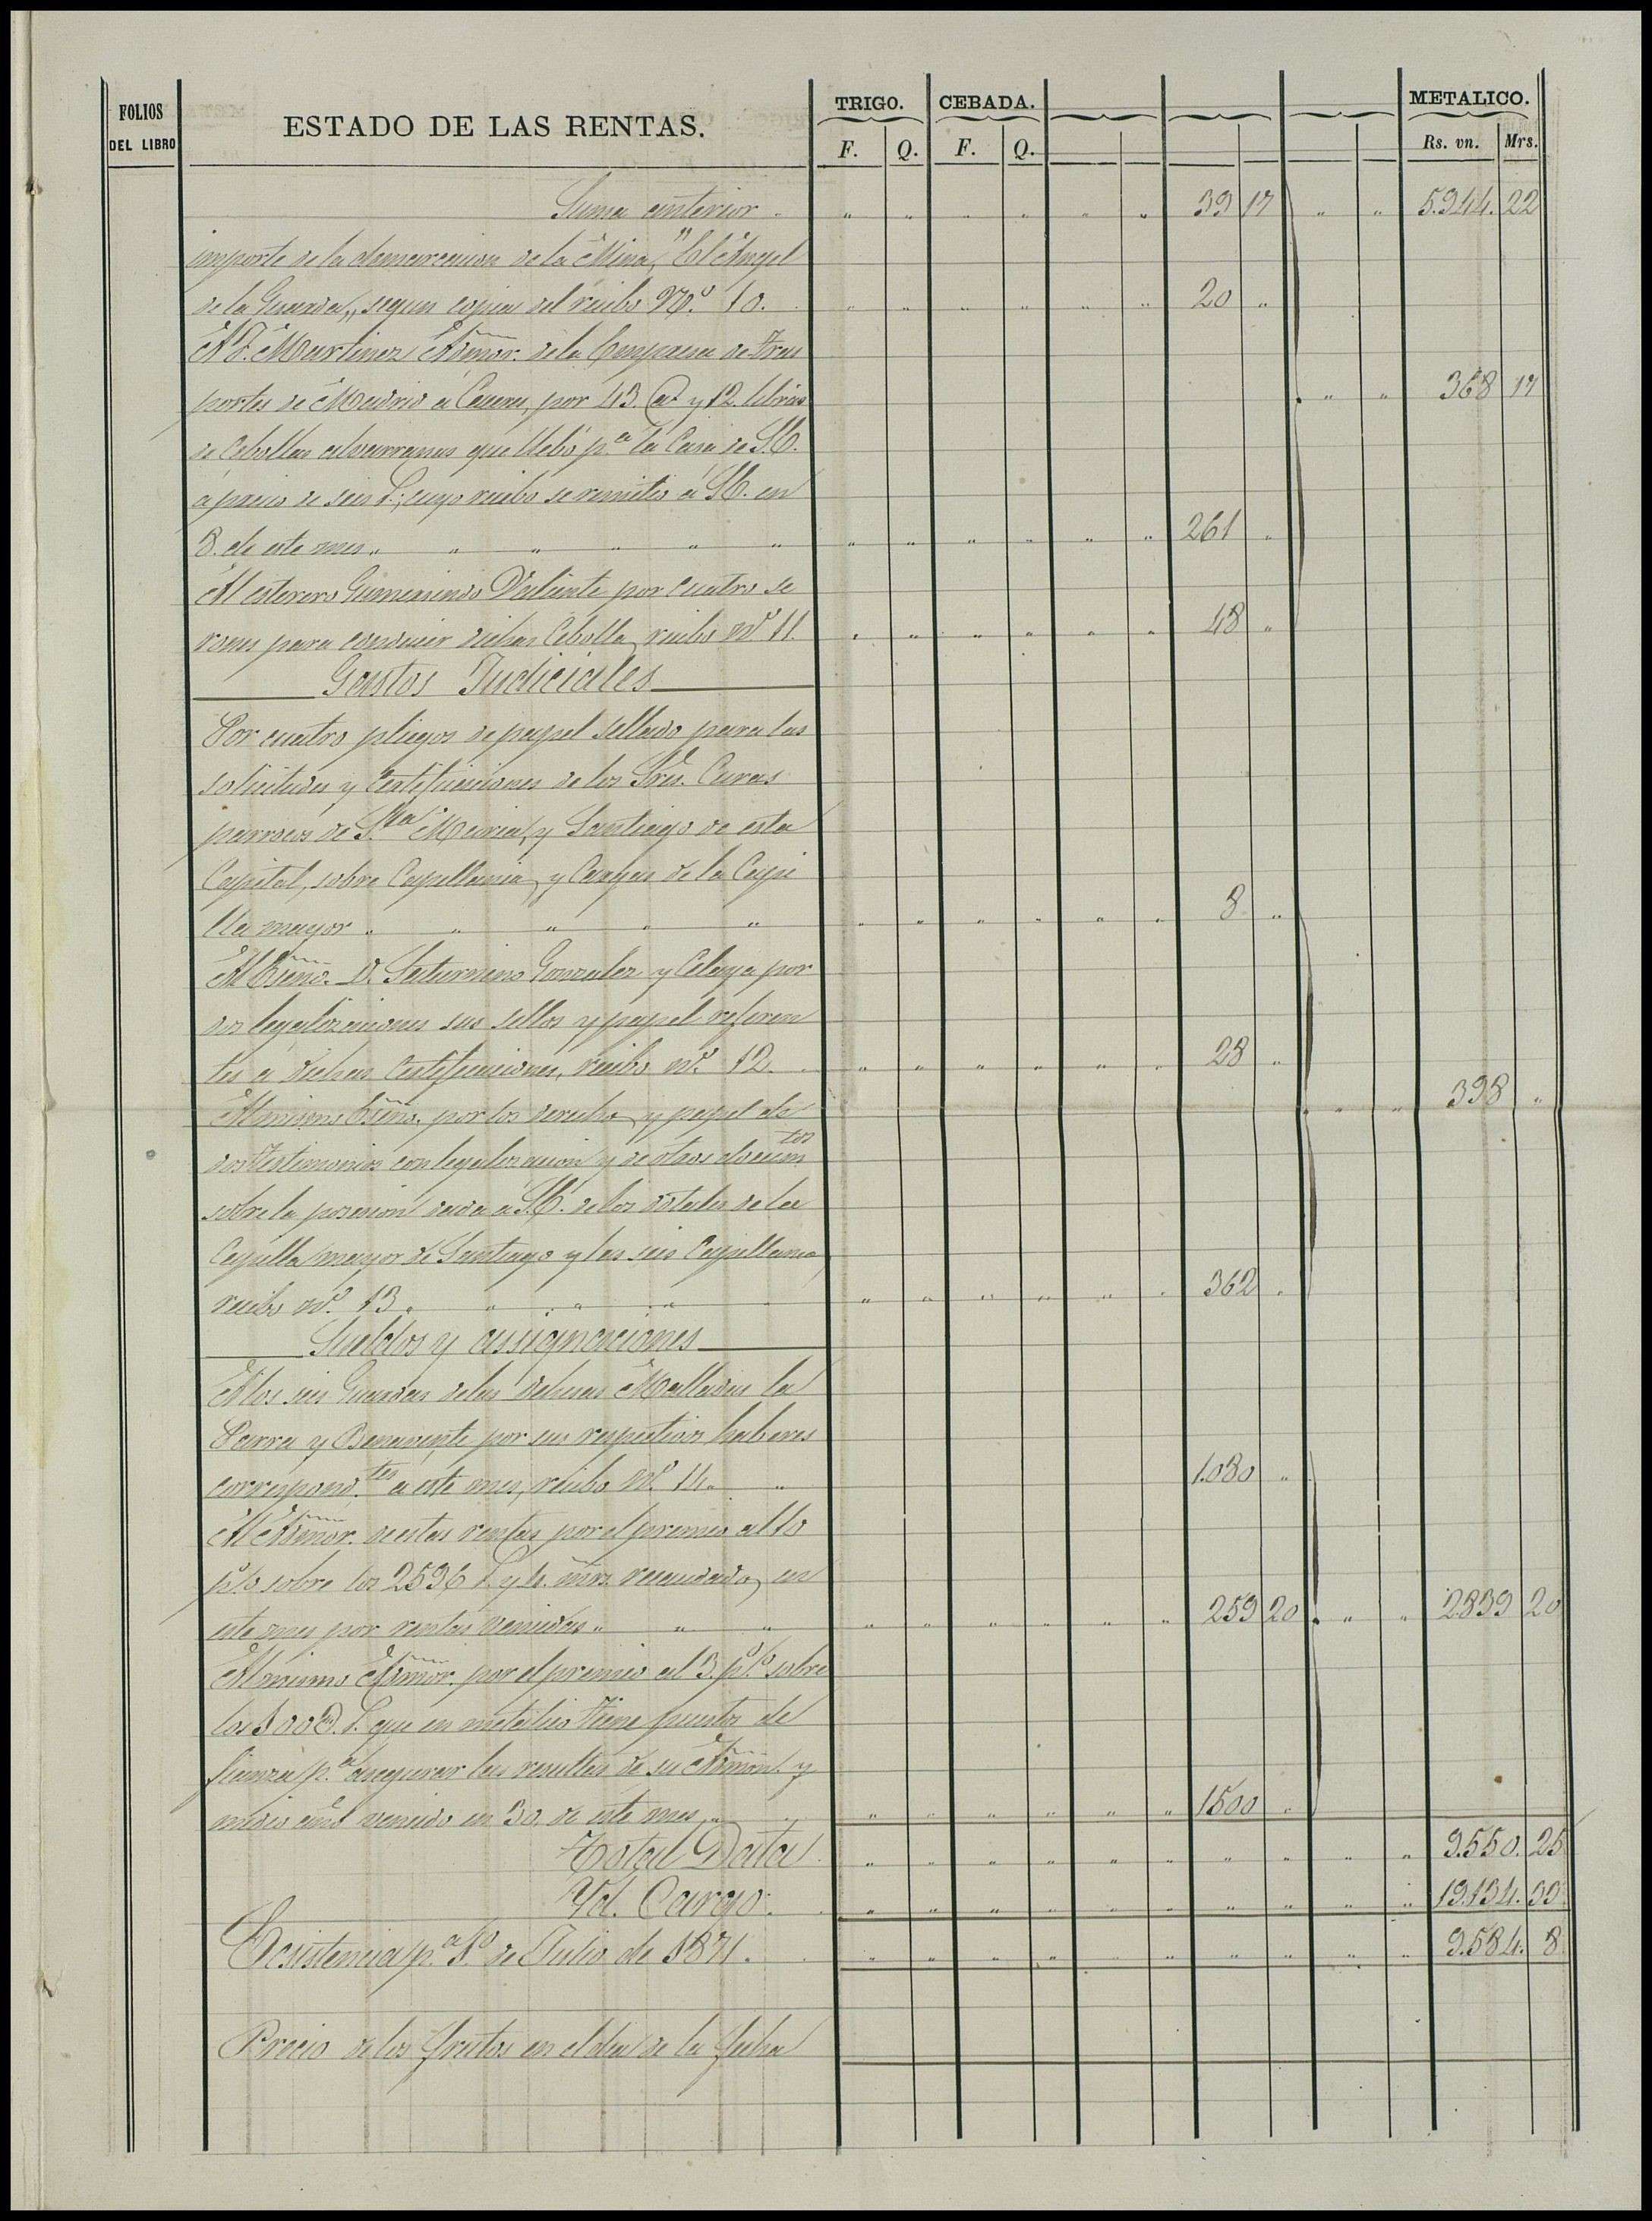 FOLIOS DEL LIBRO
ESTADO DE LAS RENTAS.
TRIGO. CEBADA. METALICO.
F. Q. F. Q. Rs. vn. Mrs.
Suma anterior " " " " " " 39 17 " " 5.944. 22
importe de la demarcacion de la Mina, "El Angel
de la Guarda,, segun copia del recibo Nº. 10. " " " " " " 20 "
A F. Martinez Admor. de la Empresa de tras
portes de Madrid á Caceres, por 43. @ y 12. libras " " 368 17
de Cebollas albarranas que llebó p.ª la Casa de S.E.
á precio de seis r.; cuyo recibo se remitió á S.E. en
8. de este mes " " " " " " " " " " " " 261 "
Al esterero Gumersindo Valiente por cuatro se
rones para conducir dichas Cebollas, recibo nº 11. " " " " " " 48 "
Gastos Judiciales
Por cuatro pliegos de papel sellado para las
solicitudes y Certificaciones de los Sres. Curas
parrocos de S.ta Maria, y Santiago de esta
Capital, sobre Capellania y Cargas de la Capi
lla mayor " " " " " " " " " " " 8 "
Al Esno. D. Saturnino Gonzalez y Celaya por
dos legalizaciones sus sellos y papel referen
tes á dichas Certificaciones, recibo nº. 12. " " " " " " 28 "
Al mismo Esno. por los derechos y papel de " " 398 "
dos testimonios con legalizacion y de otros docum.tos
sobre la posesion dada á S.E. de los dotales de la
Capilla mayor de Santiago y las seis Capellanias,
recibo nº. 13. " " " " " " " " " " 362 "
Sueldos y assignaciones
A los seis Guardas de las dehesas Malladas la
Parra y Benavente por sus respectivos haberes
correspond.tes a este mes, recibo Nº. 14. " 1.080 "
Al Admor. de estas rentas por el premio al 10
p% sobre los 2596 r. y mrs. recaudados, en
este mes por rentas vencidas " " " " " " " " " 259 20 " " 2839 20
Al mismo Admor. por el premio al 3. p%. sobre
los r. que en metalico tiene puestos de
fianza p.ª asegurar las resultas de su Admon. y
medio año vencido en 30. de este mes " " " " " " " 1500 "
Total Data " " " " " " " " " " 9.550. 25
Yd. Cargo. " " " " " " " " " " 19.134. 33
Ecsistencia p.ª 1.º de Julio de 1871. " " " " " " " " " " 9.584. 8
Precio de los frutos en el dia de la fecha